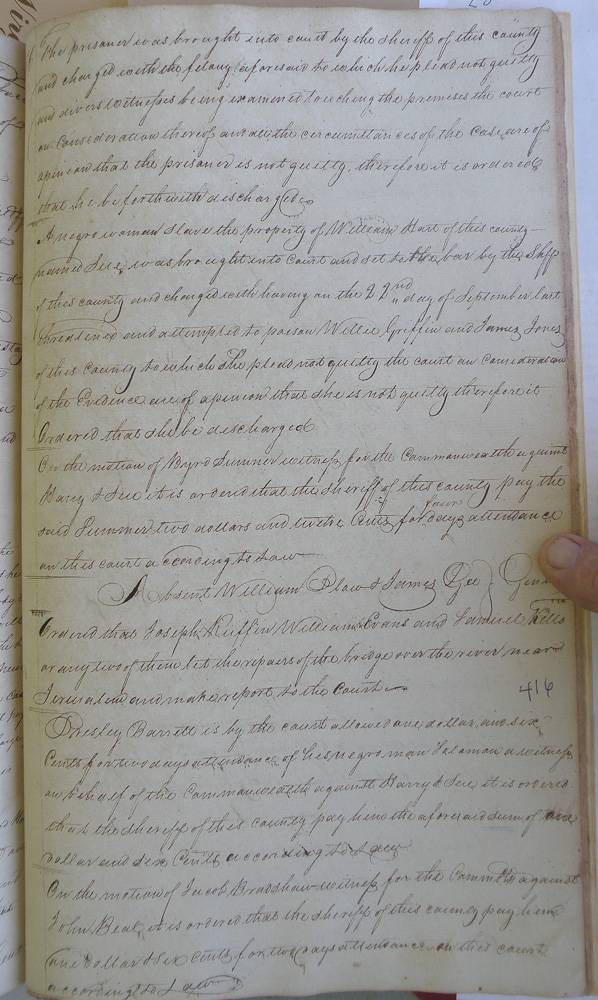 The prisoner was brought into court by the sheriff of this county
and charged with the felony aforesaid to which he plead not guilty
and divers witnesses being examined touching the premises the court
on Consideration thereof and all the circumstances of the case are of
opinion that the prisoner is not guilty, therefore it is ordered
that he be forthwith discharged
A negro woman slave the property of William Hart of this county
named Sue, was brought into court and set to the bar by the Shff
of this county and charged with having on the 22nd day of September last
threatened and attempted to poison Willie Griffin and James Jones
of this County to which She plead not guilty the court on Consideration
of the Evidence are of opinion that she is not guilty therefore it
Ordered that she be discharged
On the motion of Byrd Sumner witness for the Commonwealth against
Harry & Sue it is ordered that the sheriff of this county pay the
said Sumner two dollars and twelve Cents for four days attendance
on this court according to Law
Absent William Blow & James Gee } Gent
Ordered that Joseph Ruffin William Evans and Samuel Kello
or any two of them let the repairs of the bridge over the river near
Jerusalem and make report to the Court
416
Presley Barrett is by the court allowed one dollar and six
Cents for two days attendance of his negro man Solomon a witness
on behalf of the Commonwealth against Harry & Sue it is ordered
that the sheriff of this county pay him the aforesaid sum of one
dollar and six Cents according to Law
On the motion of Jacob Bradshaw witness for the Commth against
John Beal, it is ordered that the sheriff of this county pay him
one dollar & six cents for two days attendance on this court
according to Law